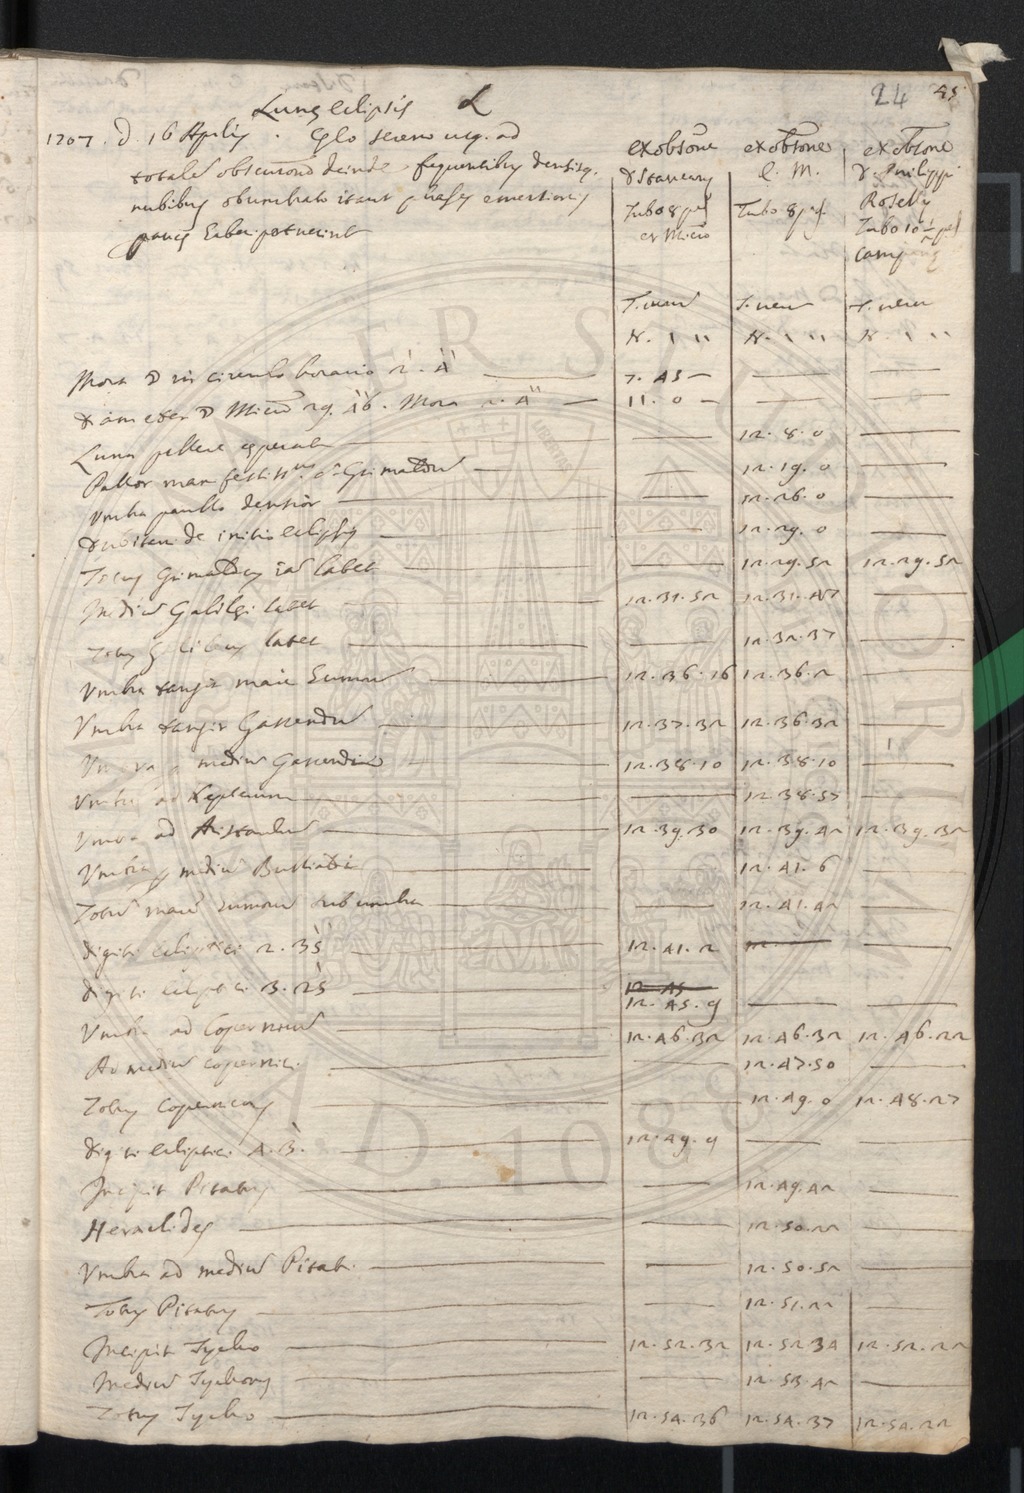 24 45
Lunæ eclipsis L
1707. d. 16 Aprilis. Cœlo sereno usq. ad
totalē obscuronē deinde frequentibus densisq.
nubibus obumbrato itaut phases emersionis
paucæ haberi potuerint
ex obsone
D Stancary
Tubo 8 ped
ex Micro
ex obsone
E. M.
Tubo 8 ped.
ex obsone
D. Philippi
Roselly
Tubo 10 ½ ped
T. verū T. verū T. verū
H. ' '' H. ' '' H. ' ''
Mora D in circulo horario 2'. 4'' 7. 45 —
Diameter D Micro 29'. 46''. Mora 2'. 4'' 11. 0 —
Luna pallere 12. 8. 0
Pallor manifestissus Grimaldum 12. 19. 0
Umbra paullo densior 12. 26. 0
Dubitatur de initio eclipsis 12. 29. 0
Totus Grimaldus iam latet 12. 29. 52 12. 29. 52
Mediū Galilei latet 12. 31. 52 12. 31. 47
Totus Galileus latet 12. 32. 37
Umbra tangit mare humorū 12. 36. 16 12. 36. 2
Umbra tangit Gassendū 12. 37. 32 12. 36. 32
Umbra mediū Gassendū 12. 38. 10 12. 38. 10
Umbra ad Keplerum 12. 38. 57
Umbra ad Aristarchū 12. 39. 30 12. 39. 42 12. 39. 32
Umbra p mediū Bullialdi 12. 41. 6
Totū mare humorū sub umbra 12. 41. 42
Digiti ecliptici 2. 35' 12. 41. 2
Digiti ecliptici 3. 25' 12. 45. 9
Umbra ad Copernicū 12. 46. 32 12. 46. 32 12. 46. 22
Ad mediū Copernici 12. 47. 50
Totus Copernicus 12. 49. 0 12. 48. 27
Digiti ecliptici 4. 3'. 12. 49. 9
Incipit Pitatus 12. 49. 42
Heraclides 12. 50. 22
Umbra ad mediū Pitati 12. 50. 52
Totus Pitatus 12. 51. 22
Incipit Tycho 12. 52. 32 12. 52 34 12. 52. 22
Mediū Tychonis 12. 53. 42
Totus Tycho 12. 54. 36 12. 54. 37 12. 54. 22